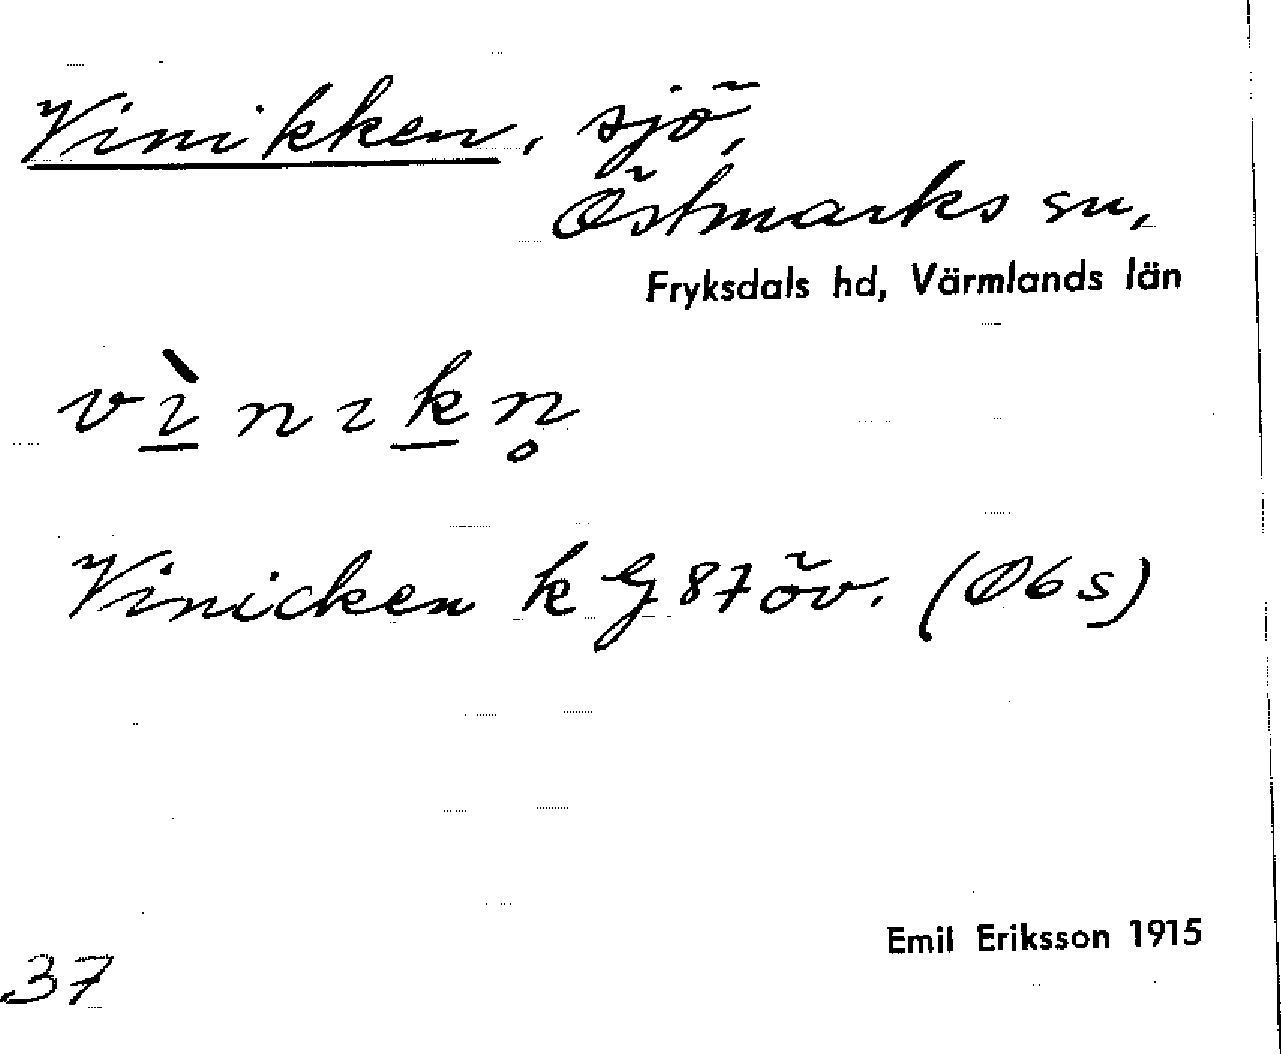 Vinikken, sjö,
Östmarks sn,
Fryksdals hd, Värmlands län
vı̀nıkn̥
Vinicken k G 87 öv. (Ø6s)
Emil Eriksson 1915
37